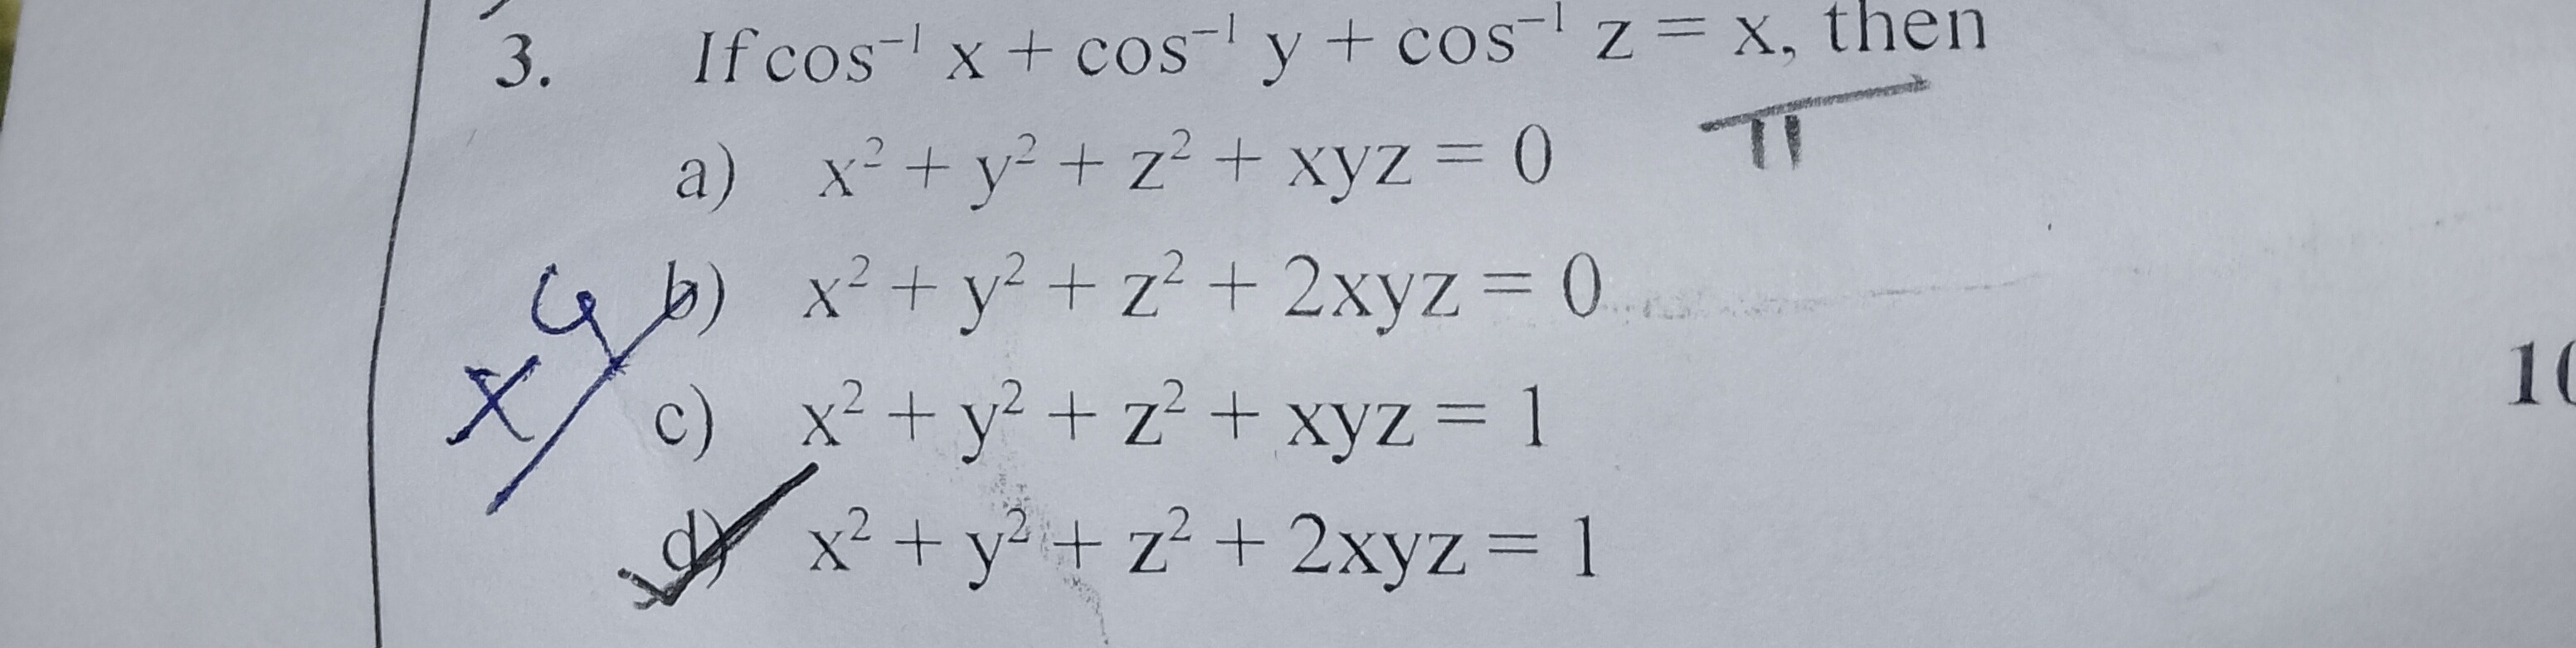 3. If cos⁻¹ x + cos⁻¹ y + cos⁻¹ z = x, then
π
a) x² + y² + z² + xyz = 0
b) x² + y² + z² + 2xyz = 0
c) x² + y² + z² + xyz = 1
d) x² + y² + z² + 2xyz = 1